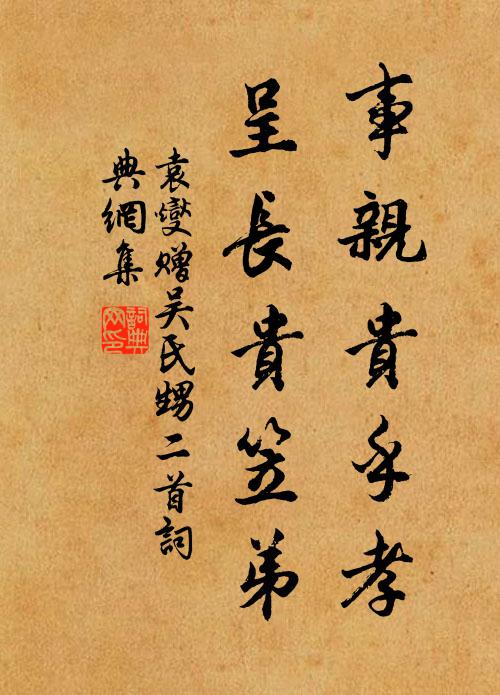 事親貴乎孝
呈長貴笠弟
袁燮贈吳氏甥二首詞
典網集
詞典
网印